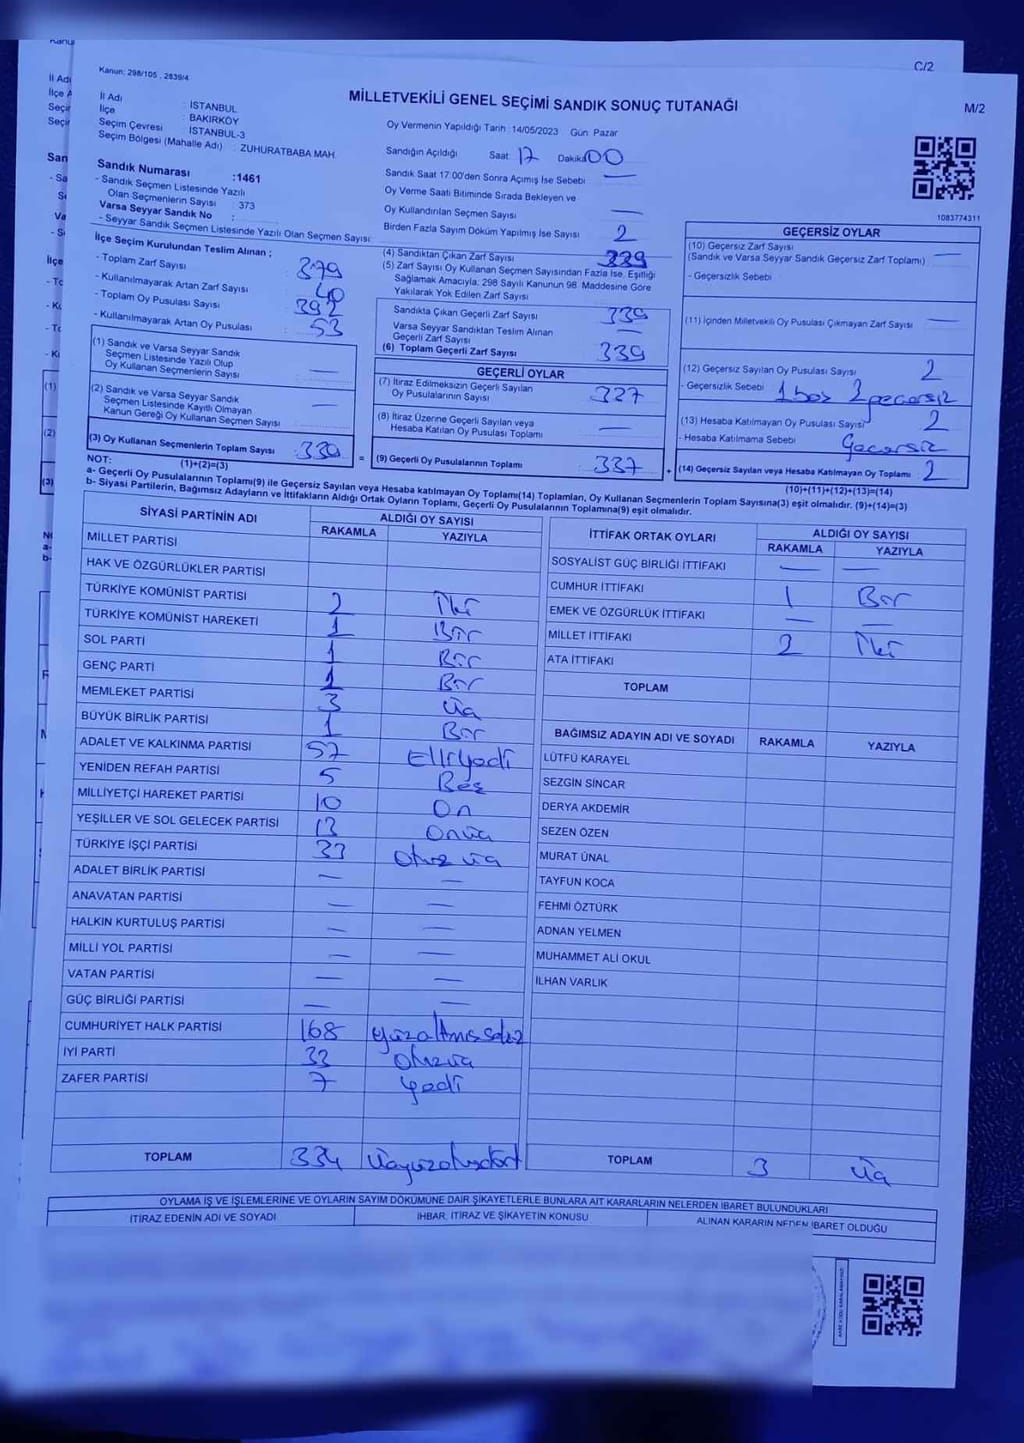 Kanun: 298/105 , 2839/4
C/2
MİLLETVEKİLİ GENEL SEÇİMİ SANDIK SONUÇ TUTANAĞI
M/2
İl Adı : İSTANBUL
İlçe : BAKIRKÖY
Seçim Çevresi : İSTANBUL-3
Seçim Bölgesi (Mahalle Adı) : ZUHURATBABA MAH.
Sandık Numarası :1461
- Sandık Seçmen Listesinde Yazılı
Olan Seçmenlerin Sayısı : 373
Varsa Seyyar Sandık No :
- Seyyar Sandık Seçmen Listesinde Yazılı Olan Seçmen Sayısı
İlçe Seçim Kurulundan Teslim Alınan ;
- Toplam Zarf Sayısı : 379
- Kullanılmayarak Artan Zarf Sayısı : 40
- Toplam Oy Pusulası Sayısı : 392
- Kullanılmayarak Artan Oy Pusulası : 53
(1) Sandık ve Varsa Seyyar Sandık
Seçmen Listesinde Yazılı Olup
Oy Kullanan Seçmenlerin Sayısı : —
(2) Sandık ve Varsa Seyyar Sandık
Seçmen Listesinde Kayıtlı Olmayan
Kanun Gereği Oy Kullanan Seçmen Sayısı : —
(3) Oy Kullanan Seçmenlerin Toplam Sayısı : 339
(1)+(2)=(3)
Oy Vermenin Yapıldığı Tarih : 14/05/2023 Gün: Pazar
Sandığın Açıldığı Saat: 17 Dakika: 00
Sandık Saat 17.00'den Sonra Açılmış İse Sebebi : —
Oy Verme Saati Bitiminde Sırada Bekleyen ve
Oy Kullandırılan Seçmen Sayısı : —
Birden Fazla Sayım Döküm Yapılmış İse Sayısı : 2
(4) Sandıktan Çıkan Zarf Sayısı : 339
(5) Zarf Sayısı Oy Kullanan Seçmen Sayısından Fazla İse, Eşitliği
Sağlamak Amacıyla; 298 Sayılı Kanunun 98. Maddesine Göre
Yakılarak Yok Edilen Zarf Sayısı :
Sandıkta Çıkan Geçerli Zarf Sayısı : 339
Varsa Seyyar Sandıktan Teslim Alınan
Geçerli Zarf Sayısı : —
(6) Toplam Geçerli Zarf Sayısı : 339
GEÇERLİ OYLAR
(7) İtiraz Edilmeksizin Geçerli Sayılan
Oy Pusulalarının Sayısı : 327
(8) İtiraz Üzerine Geçerli Sayılan veya
Hesaba Katılan Oy Pusulası Toplamı : —
= (9) Geçerli Oy Pusulalarının Toplamı : 337
1083774311
GEÇERSİZ OYLAR
(10) Geçersiz Zarf Sayısı
(Sandık ve Varsa Seyyar Sandık Geçersiz Zarf Toplamı) : —
- Geçersizlik Sebebi :
(11) İçinden Milletvekili Oy Pusulası Çıkmayan Zarf Sayısı : —
(12) Geçersiz Sayılan Oy Pusulası Sayısı : 2
- Geçersizlik Sebebi : 1 boş
(13) Hesaba Katılmayan Oy Pusulası Sayısı : 2
- Hesaba Katılmama Sebebi : Geçersiz
+ (14) Geçersiz Sayılan veya Hesaba Katılmayan Oy Toplamı : 2
(10)+(11)+(12)+(13)=(14)
NOT:
a- Geçerli Oy Pusulalarının Toplamı(9) ile Geçersiz Sayılan veya Hesaba katılmayan Oy Toplamı(14) Toplamları, Oy Kullanan Seçmenlerin Toplam Sayısına(3) eşit olmalıdır. (9)+(14)=(3)
b- Siyasi Partilerin, Bağımsız Adayların ve İttifakların Aldığı Ortak Oyların Toplamı, Geçerli Oy Pusulalarının Toplamına(9) eşit olmalıdır.
SİYASİ PARTİNİN ADI ALDIĞI OY SAYISI
RAKAMLA YAZIYLA
MİLLET PARTİSİ
HAK VE ÖZGÜRLÜKLER PARTİSİ
TÜRKİYE KOMÜNİST PARTİSİ 2 İki
TÜRKİYE KOMÜNİST HAREKETİ 1 Bir
SOL PARTİ 1 Bir
GENÇ PARTİ 1 Bir
MEMLEKET PARTİSİ 3 üç
BÜYÜK BİRLİK PARTİSİ 1 Bir
ADALET VE KALKINMA PARTİSİ 57 Elliyedi
YENİDEN REFAH PARTİSİ 5 Beş
MİLLİYETÇİ HAREKET PARTİSİ 10 On
YEŞİLLER VE SOL GELECEK PARTİSİ 13 Onüç
TÜRKİYE İŞÇİ PARTİSİ 33 Otuz üç
ADALET BİRLİK PARTİSİ — —
ANAVATAN PARTİSİ — —
HALKIN KURTULUŞ PARTİSİ — —
MİLLİ YOL PARTİSİ — —
VATAN PARTİSİ — —
GÜÇ BİRLİĞİ PARTİSİ — —
CUMHURİYET HALK PARTİSİ 168 yüzaltmışsekiz
İYİ PARTİ 33 otuzüç
ZAFER PARTİSİ 7 yedi
TOPLAM 334 üçyüzotuzdört
İTTİFAK ORTAK OYLARI ALDIĞI OY SAYISI
RAKAMLA YAZIYLA
SOSYALİST GÜÇ BİRLİĞİ İTTİFAKI — —
CUMHUR İTTİFAKI 1 Bir
EMEK VE ÖZGÜRLÜK İTTİFAKI — —
MİLLET İTTİFAKI 2 İki
ATA İTTİFAKI
TOPLAM
BAĞIMSIZ ADAYIN ADI VE SOYADI RAKAMLA YAZIYLA
LÜTFÜ KARAYEL
SEZGİN SİNCAR
DERYA AKDEMİR
SEZEN ÖZEN
MURAT ÜNAL
TAYFUN KOCA
FEHMİ ÖZTÜRK
ADNAN YELMEN
MUHAMMET ALİ OKUL
İLHAN VARLIK
TOPLAM 3 üç
OYLAMA İŞ VE İŞLEMLERİNE VE OYLARIN SAYIM DÖKÜMÜNE DAİR ŞİKAYETLERLE BUNLARA AİT KARARLARIN NELERDEN İBARET BULUNDUKLARI
İTİRAZ EDENİN ADI VE SOYADI İHBAR, İTİRAZ VE ŞİKAYETİN KONUSU ALINAN KARARIN NEDEN İBARET OLDUĞU